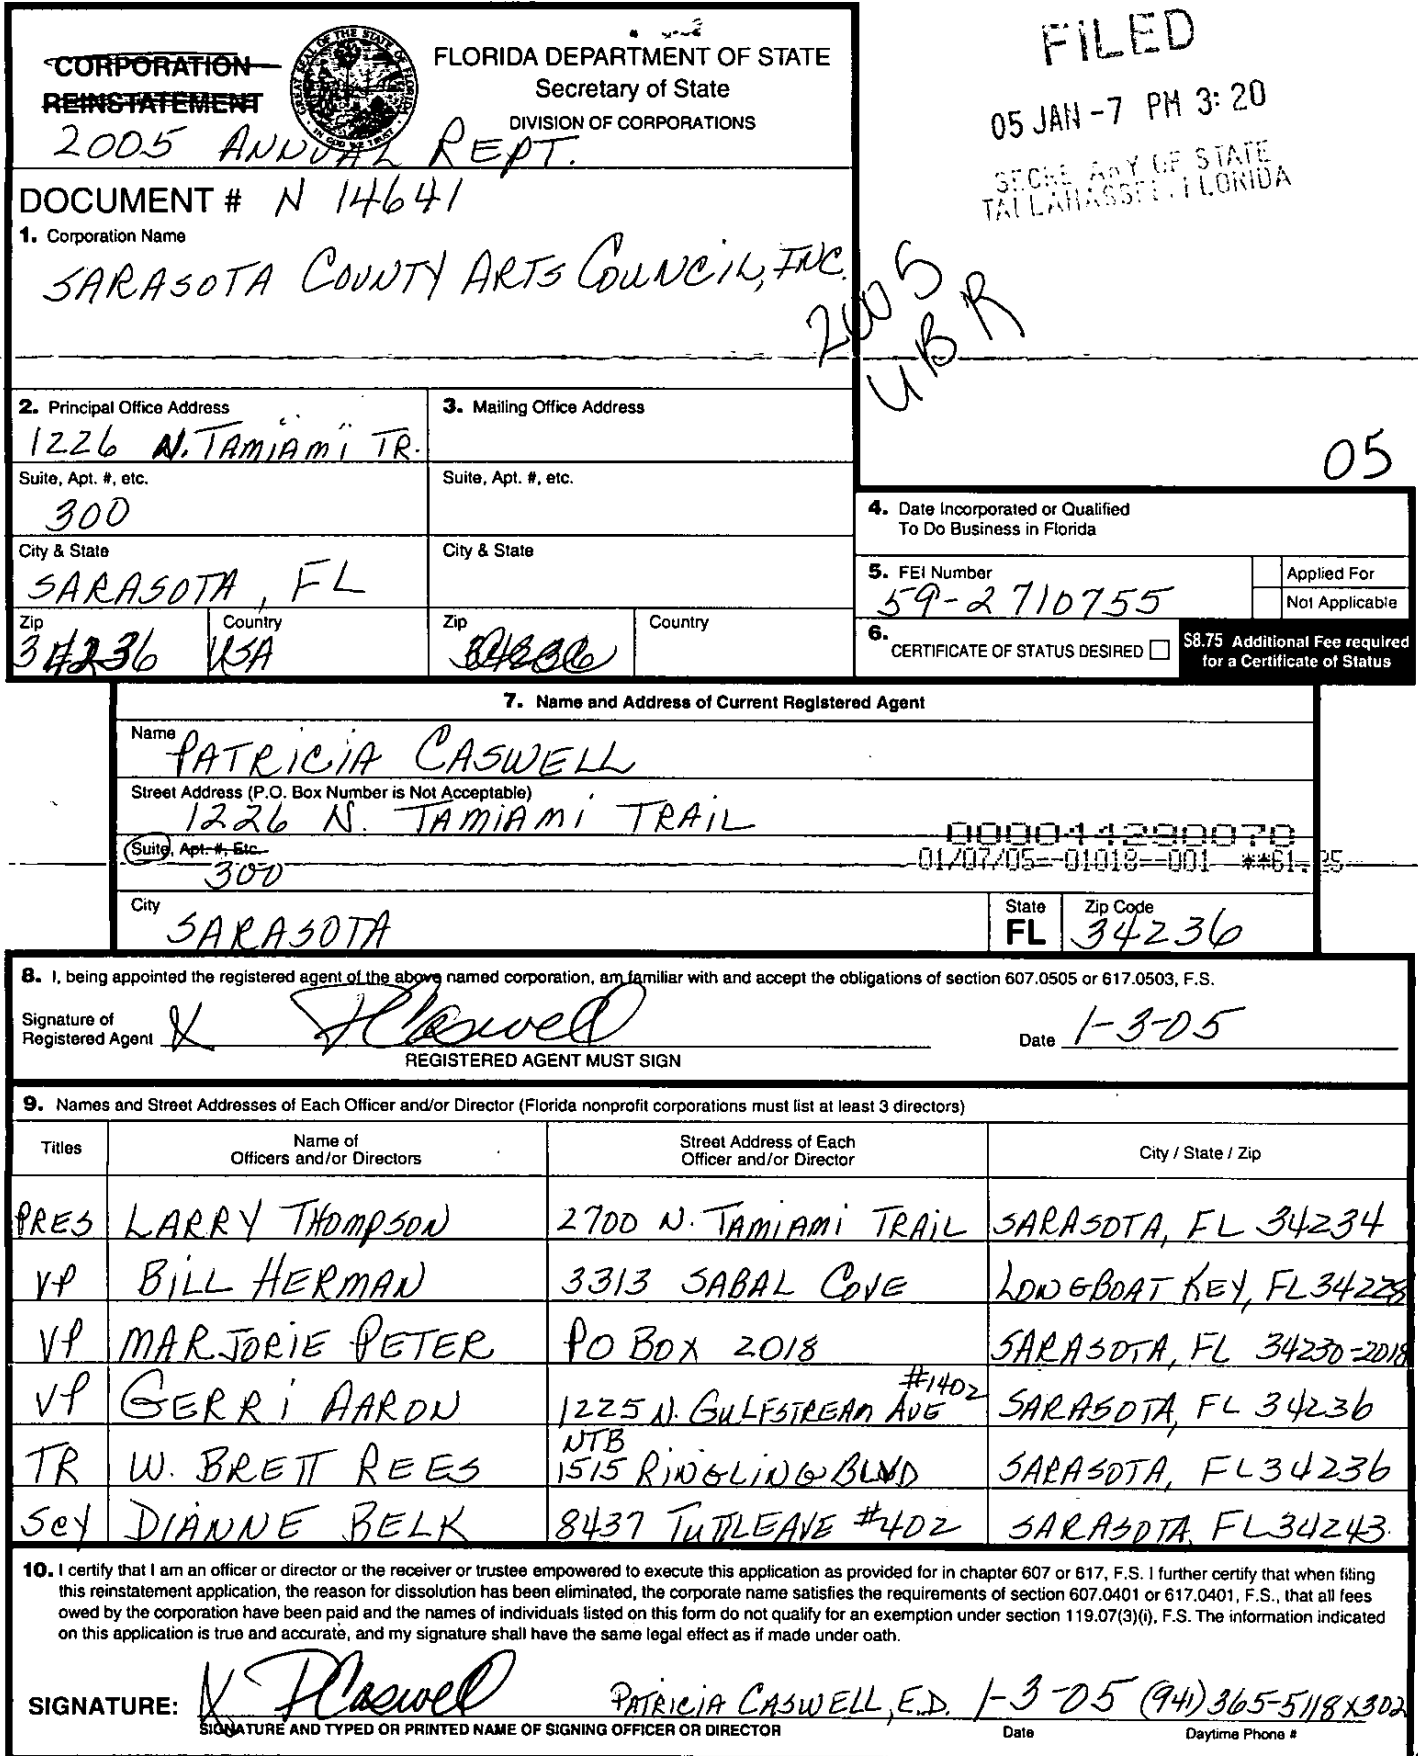 CORPORATION
REINSTATEMENT
FLORIDA DEPARTMENT OF STATE
Secretary of State
DIVISION OF CORPORATIONS
2005 ANNUAL REPT.
FILED
05 JAN -7 PM 3:20
OF STATE
FLORIDA
DOCUMENT # N 14641
1. Corporation Name
SARASOTA COUNTY ARTS COUNCIL, INC.
2005
UBR
05
2. Principal Office Address
1226 N. TAMIAMI TR.
3. Mailing Office Address
Suite, Apt. #, etc.
300
Suite, Apt. #, etc.
City & State
SARASOTA, FL
City & State
Zip
34236
Country
USA
Zip
Country
4. Date Incorporated or Qualified
To Do Business in Florida
5. FEI Number
59-2710755
Applied For
Not Applicable
6.
CERTIFICATE OF STATUS DESIRED
$8.75 Additional Fee required
for a Certificate of Status
7. Name and Address of Current Registered Agent
Name
PATRICIA CASWELL
Street Address (P.O. Box Number is Not Acceptable)
1226 N. TAMIAMI TRAIL
Suite, Apt. #, Etc.
300
01/07/05--01018--001 **61.25
City
SARASOTA
State
FL
Zip Code
34236
8. I, being appointed the registered agent of the above named corporation, am familiar with and accept the obligations of section 607.0505 or 617.0503, F.S.
Signature of
Registered Agent X PCaswell
REGISTERED AGENT MUST SIGN
Date 1-3-05
9. Names and Street Addresses of Each Officer and/or Director (Florida nonprofit corporations must list at least 3 directors)
Titles
Name of
Officers and/or Directors
Street Address of Each
Officer and/or Director
City / State / Zip
PRES LARRY THOMPSON 2700 N. TAMIAMI TRAIL SARASOTA, FL 34234
VP BILL HERMAN 3313 SABAL COVE LONGBOAT KEY, FL 34228
VP MARJORIE PETER PO BOX 2018 SARASOTA, FL 34230-2018
VP GERRI AARON 1225 N. GULFSTREAM AVE #1402 SARASOTA, FL 34236
NTB
TR W. BRETT REES 1515 RINGLING BLVD SARASOTA, FL 34236
Scy DIANNE BELK 8437 TUTTLE AVE #402 SARASOTA, FL 34243
10. I certify that I am an officer or director or the receiver or trustee empowered to execute this application as provided for in chapter 607 or 617, F.S. I further certify that when filing
this reinstatement application, the reason for dissolution has been eliminated, the corporate name satisfies the requirements of section 607.0401 or 617.0401, F.S., that all fees
owed by the corporation have been paid and the names of individuals listed on this form do not qualify for an exemption under section 119.07(3)(i), F.S. The information indicated
on this application is true and accurate, and my signature shall have the same legal effect as if made under oath.
SIGNATURE: X PCaswell PATRICIA CASWELL, E.D. 1-3-05 (941) 365-5118 X302
SIGNATURE AND TYPED OR PRINTED NAME OF SIGNING OFFICER OR DIRECTOR
Date
Daytime Phone #